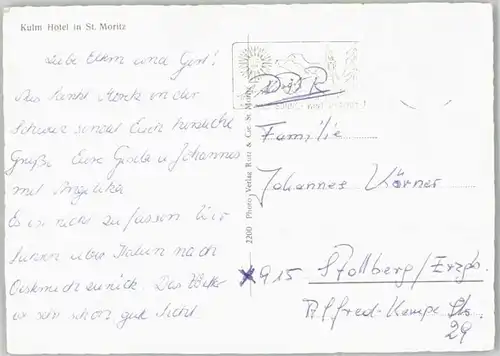 Kulm Hotel in St. Moritz
Liebe Eltern und Gert!
Aus Sankt Moritz in der
Schweiz sendet Euch herzliche
Grüße Eure Gisela u. Johannes
mit Angelika
Es ist nicht zu fassen. Wir
fahren über Italien nach
zurück. Das Wetter
ist sehr schön gute Sicht.
2200 Photo Verlag Rutz & Cie. St. Moritz
DDR
Familie
Johannes Körner
915 Stollberg/Erzgb.
Alfred-Kempe Str.
29